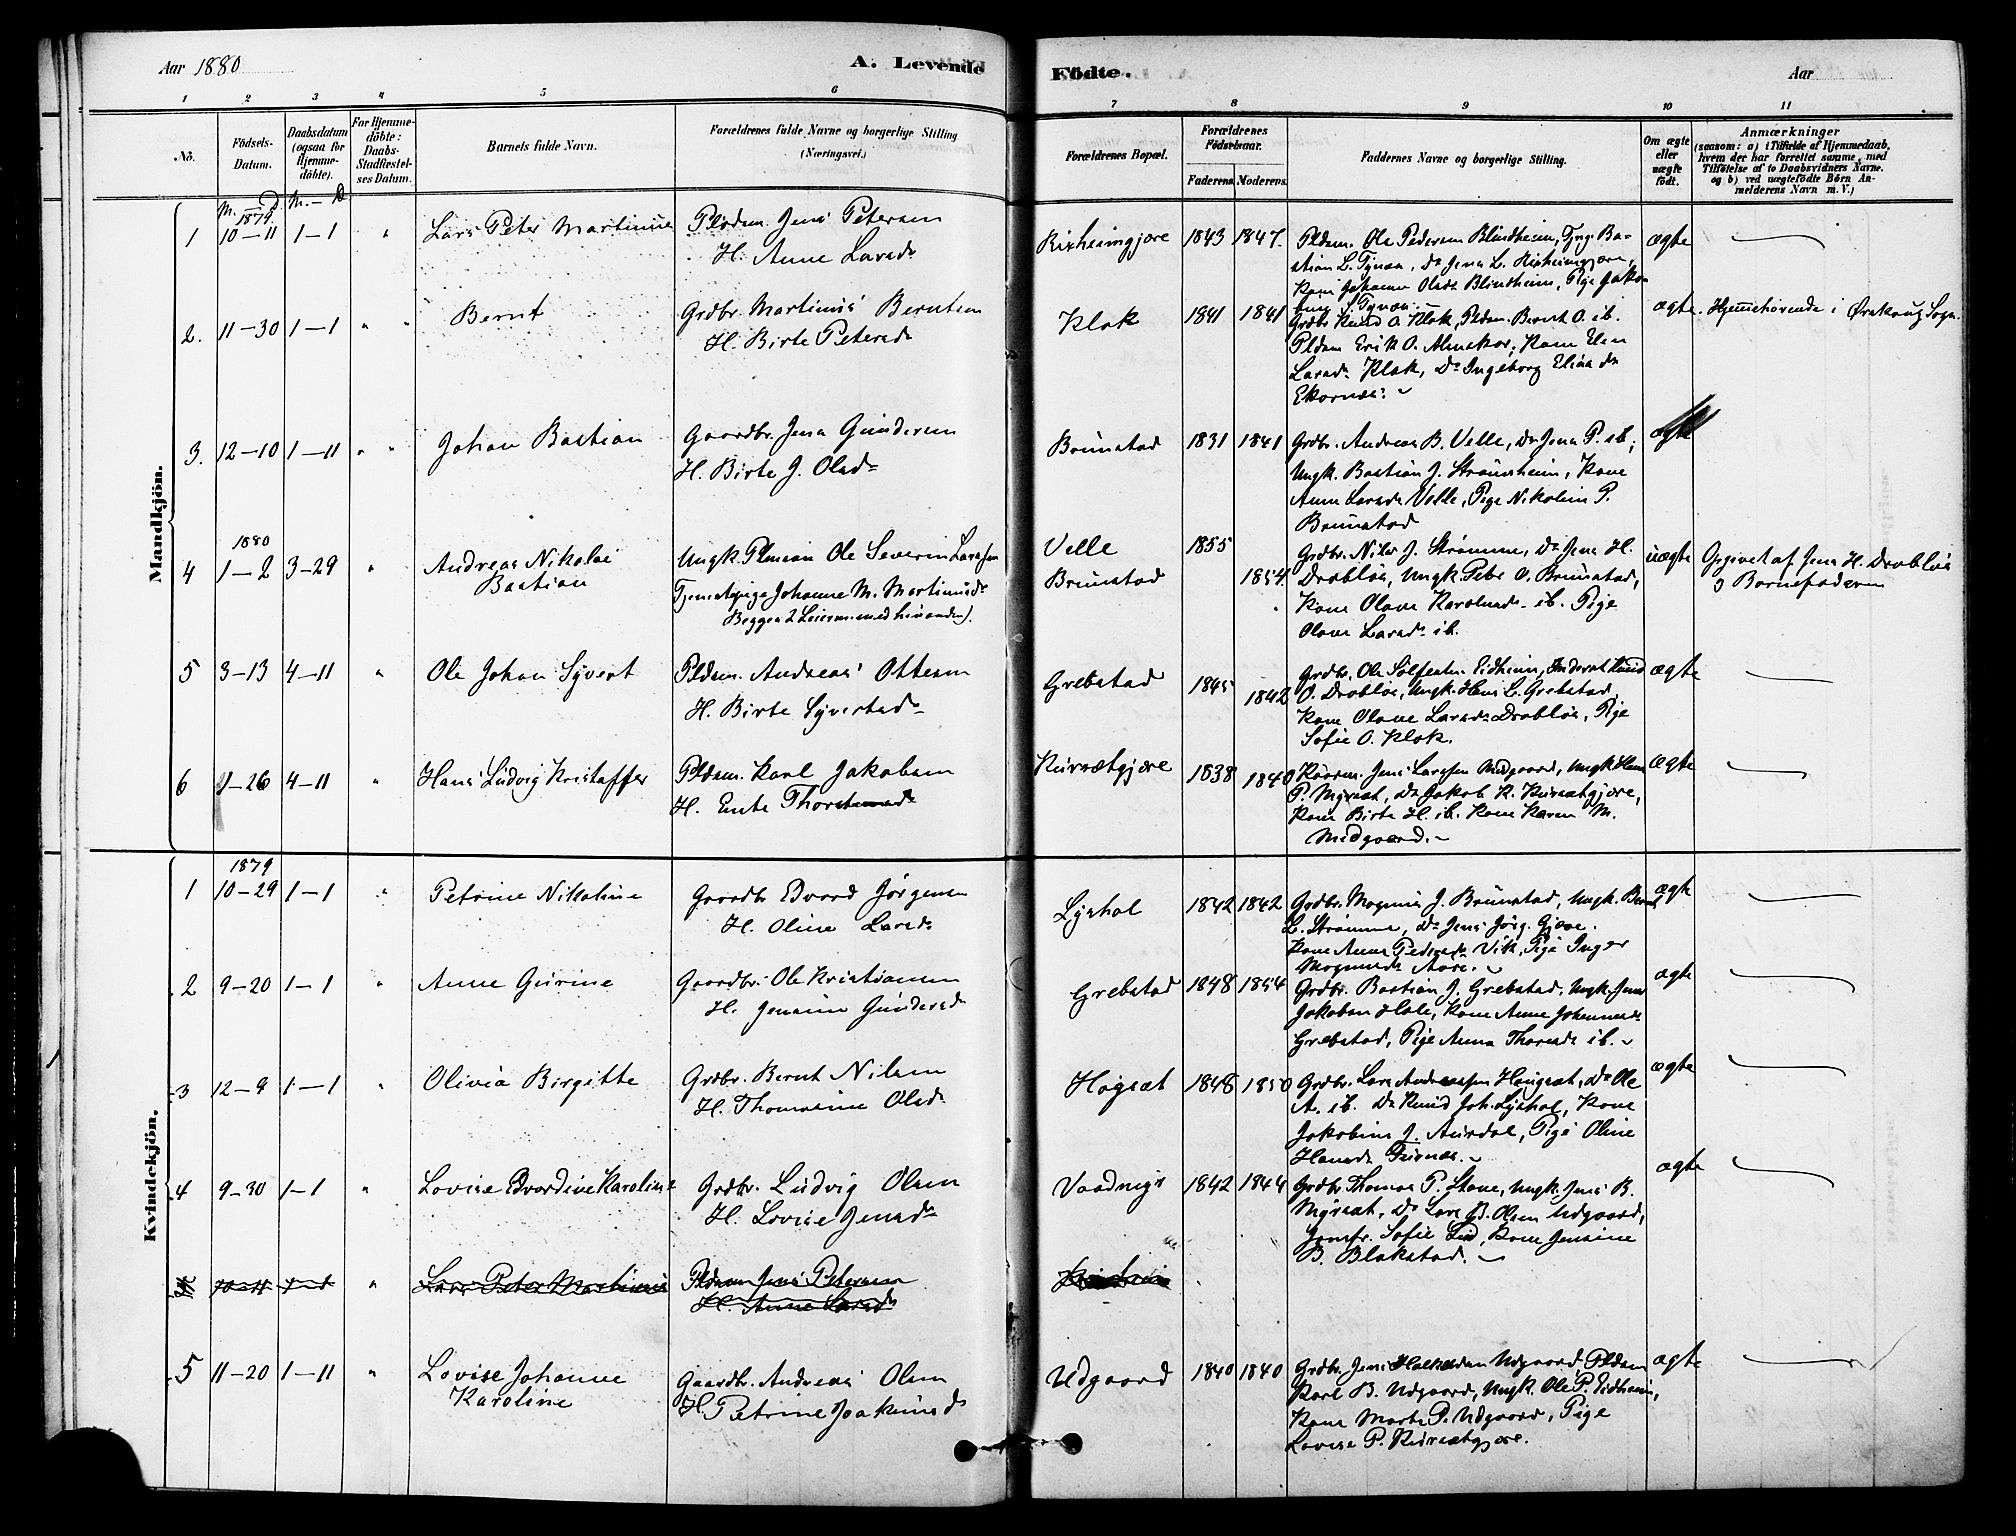 Aar 1880
A. Levende
Födte.
Aar
1 2 3 4 5 6 7 8 9 10 11
No.
Födsels-Datum.
Daabsdatum (ogsaa for Hjemme-döbte).
For Hjemme-döbte: Daabs-Stadfæstel-ses Datum.
Barnets fulde Navn.
Forældrenes fulde Navne og borgerlige Stilling
(Næringsvei.)
Forældrenes Bopæl.
Forældrenes Födselsaar.
Faderens. Moderens.
Faddernes Navne og borgerlige Stilling.
Om ægte eller uægte födt.
Anmærkninger
(saasom: a) i Tilfælde af Hjemmedaab,
hvem der har forrettet samme, med
Tilföielse af to Daabsvidners Navne.
og b) ved uægtefödte Börn An-
melderens Navn m. V.)
Mandkjön.
M. — D. M. — D
1879
1 10—11 1—1 " Lars Peter Martinus
Pldsm. Jens Petersen
H. Anne Larsdr
Kirheimgjære 1843 1847.
Pldsm. Ole Pedersen Blindheim, Tjng. Ba-
stian L. Tynæs, Do Jens L. Kirheimgjære,
Kone Johanne Olsdr Blindheim, Pige Jako-
bine S. Tynæs.
ægte
2. 11—30 1—1 " " Bernt
Grdbr. Martinus Berntsen
H. Birte Petersdr
Klok 1841 1841
Grdbr. Knud O. Klok, Pldsm. Bernt O. ib.
Pldsm Erik O. Almeskor, Kone Elen
Larsdr Klok, Do Ingeborg Elias dr
Ekornæs.
ægte. Hjemmehörende i Ørskoug Sogn.
3. 12—10 1—11 " " Johan Bastian
Gaardbr. Jens Gundersen
H. Birte J. Olsdr
Brunstad 1831 1841
Grdbr. Andreas B. Velle, Do Jens P. ib,
Ungk. Bastian J. Straumsheim, Kone
Anne Larsdr Velle, Pige Nikoline P.
Brunstad
ægte
1880
4 1—2 3—29 " Andreas Nikolai
Bastian
Ungk. Plmsøn Ole Severin Larssen
Tjenestpige Johanne M. Martinusdr
Begges 2 Leiersmm med hinanden).
Velle 1855
Brunstad 1854.
Grdbr. Nils J. Strømme, Do Jens H.
Drabløs, Ungk. Peter O. Brunstad,
Kone Olave Karolusdr ib. Pige
Olave Larsdr ib.
uægte Opgivet af Jens H. Drabløs
og Barnefaderen
5 3—13 4—11 " Ole Johan Syvert
Pldsm. Andreas Ottesen
H. Birte Syvertsdr
Grebstad 1845 1842
Grdbr. Ole Sølfestsn Eidheim, Inderst Knud
O. Drabløs, Ungk. Hans L. Grebstad,
Kone Olave Larsdr Drabløs, Pige
Sofie O. Klok.
ægte
6 1—26 4—11 " Hans Ludvig Kristoffer
Pldsm. Karl Jakobsen
H. Ente Thorstensdr
Kursætgjære 1838 1840
Jens Larssen Midgaard, Ungk Hans
P. Myrsæt, Do Jakob K. Kursætgjære,
Kone Birte H. ib. Kone Karen M.
Midgaard.
ægte
Kvindekjön.
1879
1 10—29 1—1 " Petrine Nikoline
Gaardbr Edvard Jørgensen
H. Oline Larsdr
Lyshol 1842 1842
Grdbr. Magnus J. Brunstad, Ungk. Bernt
L. Strømme, Do Jens Jørg. Gjære.
Kone Anne Pedersdr Vik, Pige Inger
Magnusdr Aure.
ægte
2 9—20 1—1 " Anne Gurine
Gaardbr. Ole Kristiansen
H. Jensine Gundersdr
Grebstad 1848 1854
Grdbr. Bastian J. Grebstad, Ungk. Jens
Jakobsen Hole, Kone Anne Johannesdr
Grebstad, Pige Anna Thoresdr ib.
ægte
3 12—9 1—1 " Olivia Birgitte
Grdbr. Bernt Nilsen
H. Thomasine Olsdr
Hogsæt 1848 1850
Grdbr. Lars Andreassen Haugsæt, Do Ole
A. ib. Do Knud Joh. Lyshol, Kone
Jakobine J. Aurdal, Pige Oline
Hansdr Tusvær.
ægte
4 9—30 1—1 " Lovise Edvardine Karoline
Grdbr. Ludvig Olsen
H. Lovise Jensdr
Vaadnejs 1842 1844
Grdbr. Thomas P. Stave, Ungk. Jens B.
Myrsæt, Do Lars B. Olsen Udgaard,
Jomfr. Sofie Lid, Kone Jensine
B. Blakstad.
ægte
10—11 1—1 " Lars Peter Martinus
Pldsm Jens Petersen
H. Anne Larsdr
5 11—20 1—11 " Lovise Johanne
Karoline
Gaardbr. Andreas Olsen
H. Petrine Joakimsdr
Udgaard 1840 1840
Grdbr. Jens Halkædsn Udgaard, Pldsm
Karl B. Udgaard, Ungk. Ole P. Eidheim,
Kone Marte P. Udgaard, Pige
Lovise P. Kursætgjære.
ægte